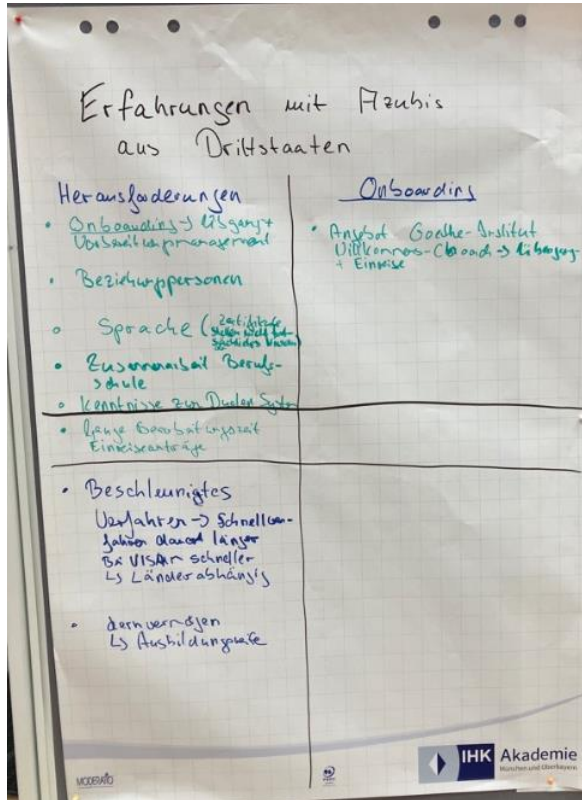 Erfahrungen mit Azubis
aus Drittstaaten
Herausforderungen
• Onboarding → Übergang +
Vorbereitungsmanagement
• Beziehungspersonen
• Sprache (Zertifikate
stellen nicht tat-
sächliches
• Zusammenarbeit Berufs-
schule
• Kenntnisse zum Dualen System
• Lange Bearbeitungszeit
Einreiseanträge
• Beschleunigtes
Verfahren → Schnellver-
fahren dauert länger
Bei VISUM schneller
↳ Länderabhängig
• Lernvermögen
↳ Ausbildungsreife
Onboarding
• Angebot Goethe-Institut
Willkommens-Coach → Übergang
+ Einreise
MODERATIO
IHK Akademie
München und Oberbayern